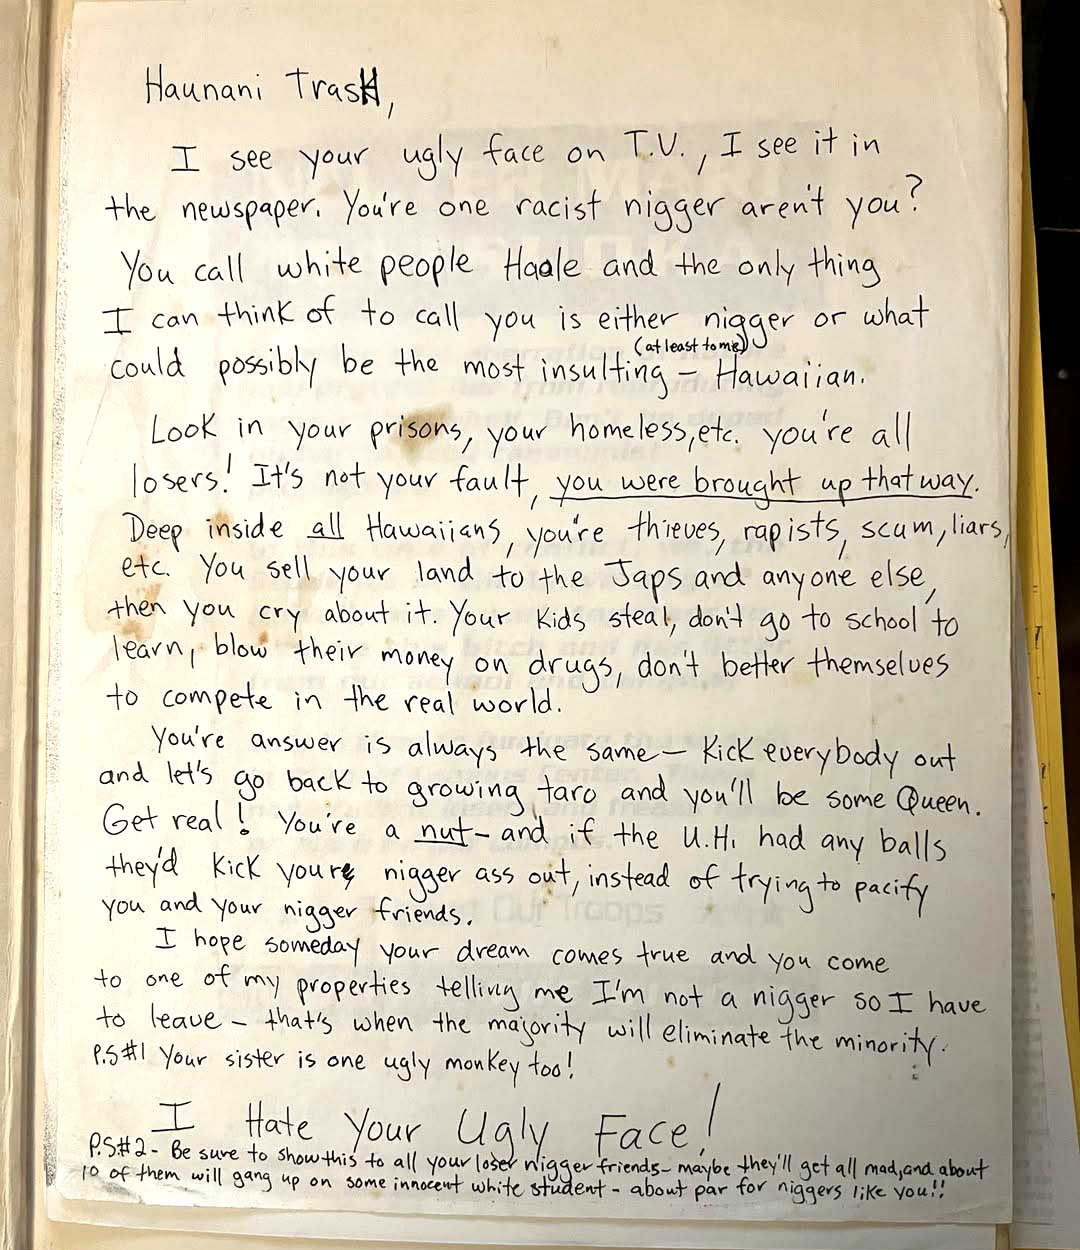 Haunani Trask,
I see your ugly face on T.V., I see it in
the newspaper. You're one racist nigger aren't you?
You call white people Haole and the only thing
I can think of to call you is either nigger or what
(at least to me)
could possibly be the most insulting – Hawaiian.
Look in your prisons, your homeless, etc. you're all
losers! It's not your fault, you were brought up that way.
Deep inside all Hawaiians, you're thieves, rapists, scum, liars,
etc. You sell your land to the Japs and anyone else,
then you cry about it. Your kids steal, don't go to school to
learn, blow their money on drugs, don't better themselves
to compete in the real world.
You're answer is always the same – Kick everybody out
and let's go back to growing taro and you'll be some Queen.
Get real! You're a nut – and if the U.H. had any balls
they'd kick your nigger ass out, instead of trying to pacify
you and your nigger friends.
I hope someday your dream comes true and you come
to one of my properties telling me I'm not a nigger so I have
to leave – that's when the majority will eliminate the minority.
P.S #1 Your sister is one ugly monkey too!
I Hate Your Ugly Face!
P.S #2 - Be sure to show this to all your loser nigger friends – maybe they'll get all mad, and about
10 of them will gang up on some innocent white student – about par for niggers like you!!